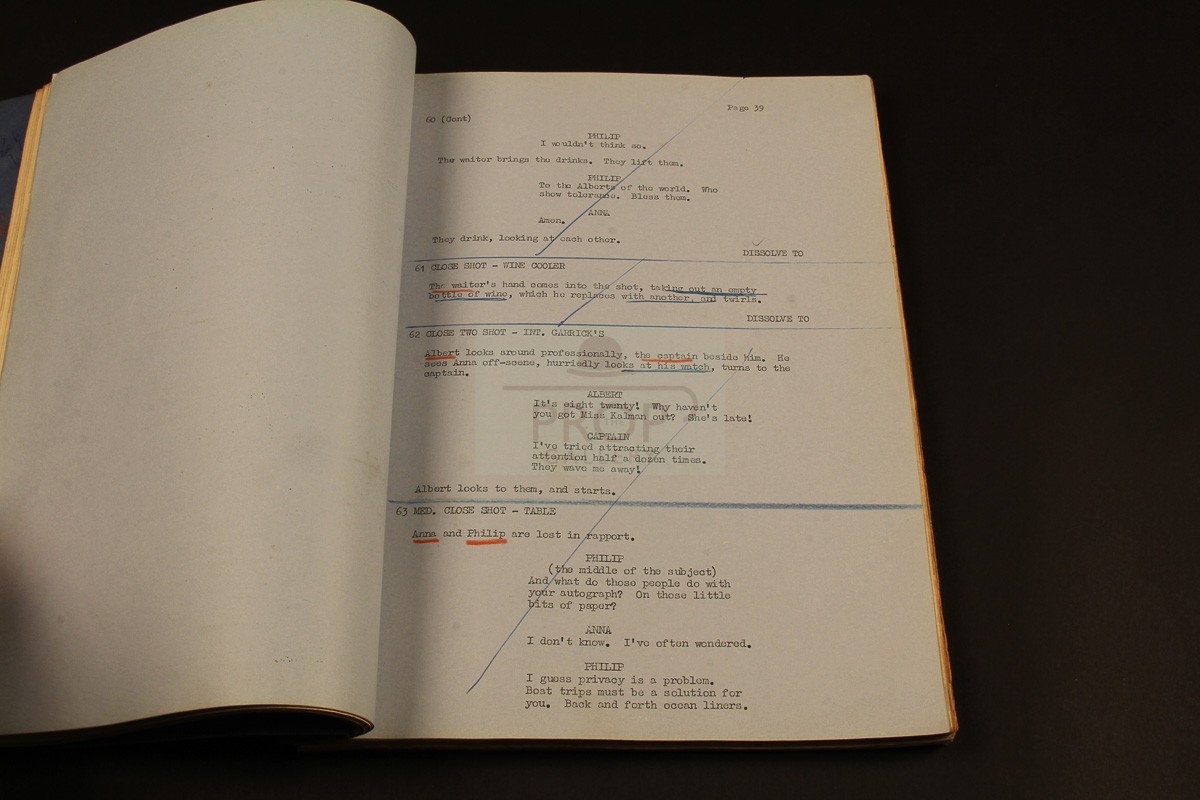 Page 39
60 (Cont)
PHILIP
I wouldn't think so.
The waiter brings the drinks. They lift them.
PHILIP
To the Alberts of the world. Who
show tolerance. Bless them.
ANNA
Amen.
They drink, looking at each other.
DISSOLVE TO
61 CLOSE SHOT - WINE COOLER
The waiter's hand comes into the shot, taking out an empty
bottle of wine, which he replaces with another, and twirls.
DISSOLVE TO
62 CLOSE TWO SHOT - INT. GARRICK'S
Albert looks around professionally, the captain beside him. He
sees Anna off-scene, hurriedly looks at his watch, turns to the
captain.
ALBERT
It's eight twenty! Why haven't
you got Miss Kalman out? She's late!
CAPTAIN
I've tried attracting their
attention half a dozen times.
They wave me away!
Albert looks to them, and starts.
63 MED. CLOSE SHOT - TABLE
Anna and Philip are lost in rapport.
PHILIP
(the middle of the subject)
And what do those people do with
your autograph? On those little
bits of paper?
ANNA
I don't know. I've often wondered.
PHILIP
I guess privacy is a problem.
Boat trips must be a solution for
you. Back and forth ocean liners.
PROP